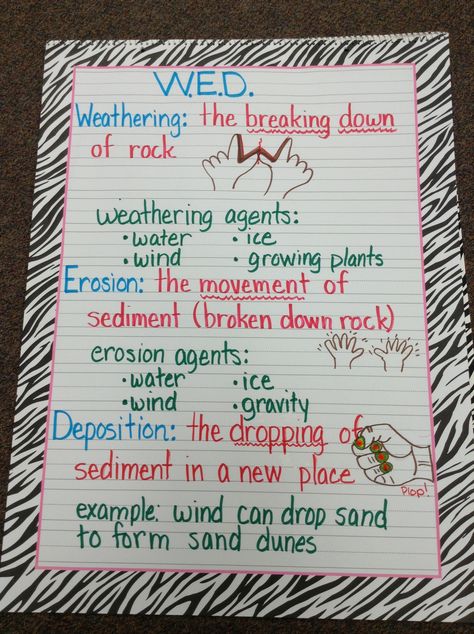 W.E.D.
Weathering: the breaking down
of rock
weathering agents:
• water • ice
• wind • growing plants
Erosion: the movement of
sediment (broken down rock)
erosion agents:
• water • ice
• wind • gravity
Deposition: the dropping of
sediment in a new place
Plop!
example: wind can drop sand
to form sand dunes